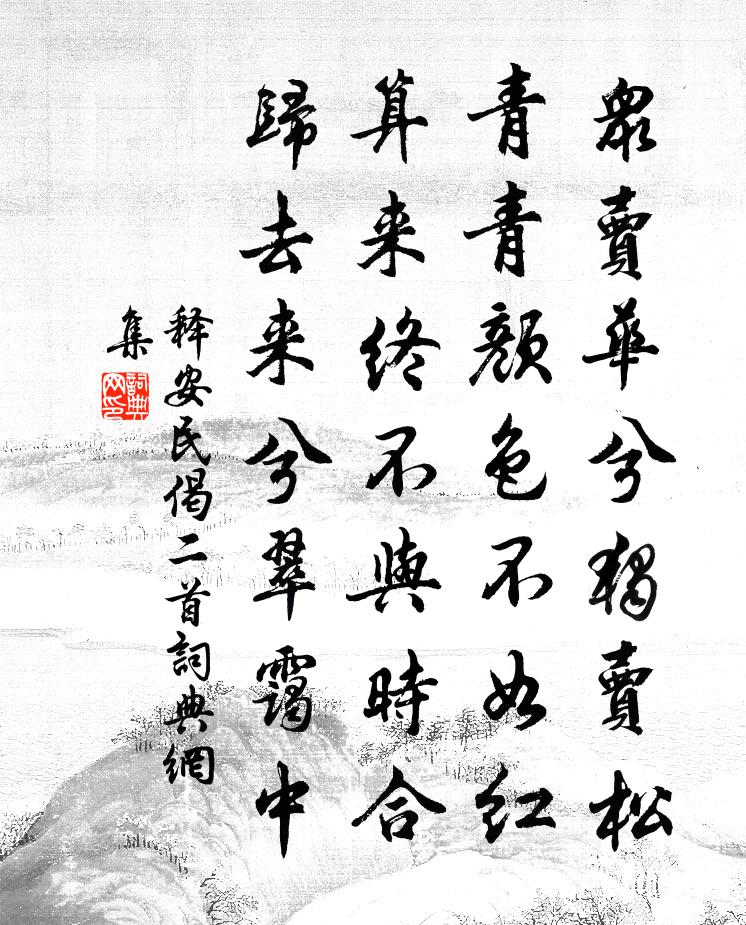 眾賣華兮獨賣松
青青顏色不如紅
算来終不與時合
歸去来兮翠靄中
释安民偈二首詞典網
集
詞典網印